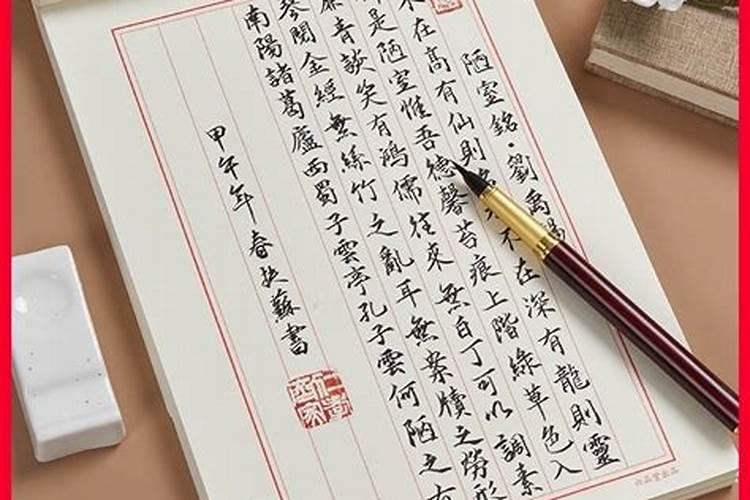 陋室銘·劉禹錫
不在高有仙則名水不在深有龍則靈
是陋室惟吾德馨苔痕上階綠草色入
青談笑有鴻儒往來無白丁可以調素
琴閱金經無絲竹之亂耳無案牘之勞形
南陽諸葛廬西蜀子雲亭孔子雲何陋之有
甲午年春扶蘇書